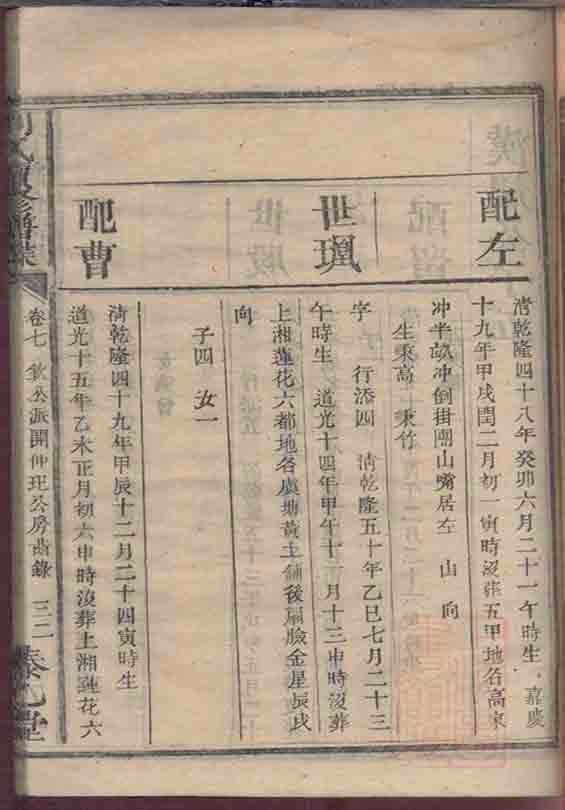 配左
清乾隆四十八年癸卯六月二十一午時生嘉慶
十九年甲戌閏二月初一寅時沒葬五甲地名高家
冲半 冲倒掛 山嘴居左 山 向
生秉高 秉竹
世
字 行添四 清乾隆五十年乙巳七月二十三
午時生 道光十四年甲午十 月十三申時沒葬
上湘蓮花六都地名虞塘黃土舖後扇臉金星辰戌
向
子四 女一
配曹
清乾隆四十九年甲辰十二月二十四寅時生
道光十五年乙未正月初六申時沒葬上湘蓮花六
氏 修譜
卷七 欽公派開仲 公房齒錄 三二
堂